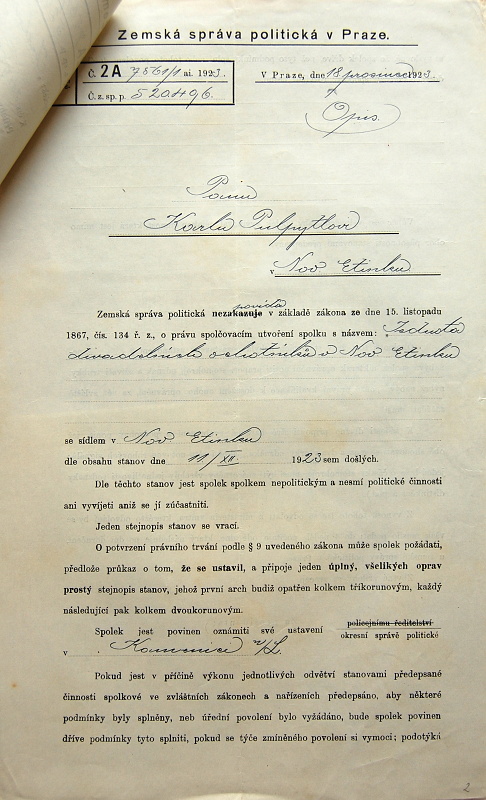 Zemská správa politická v Praze.
Č. 2A 7561/1 ai. 1923.
V Praze, dne 18 prosince 1923.
Č. z. sp. p. 520496.
Opis.
Panu
Karlu Pulpytlovi
v Nov Etinku
povida
Zemská správa politická nezakazuje v základě zákona ze dne 15. listopadu
1867, čís. 134 ř. z., o právu spolčovacím utvoření spolku s názvem: Jednota
divadelních ochotníků v Nov Etinku
se sídlem v Nov Etinku
dle obsahu stanov dne 11/XII 1923 sem došlých.
Dle těchto stanov jest spolek spolkem nepolitickým a nesmí politické činnosti
ani vyvíjeti aniž se jí zúčastniti.
Jeden stejnopis stanov se vrací.
O potvrzení právního trvání podle § 9 uvedeného zákona může spolek požádati,
předlože průkaz o tom, že se ustavil, a připoje jeden úplný, všelikých oprav
prostý stejnopis stanov, jehož první arch budiž opatřen kolkem tříkorunovým, každý
následující pak kolkem dvoukorunovým.
Spolek jest povinen oznámiti své ustavení policejnímu ředitelství
okresní správě politické
v Kamenice n/L.
Pokud jest v příčině výkonu jednotlivých odvětví stanovami předepsané
činnosti spolkové ve zvláštních zákonech a nařízeních předepsáno, aby některé
podmínky byly splněny, neb úřední povolení bylo vyžádáno, bude spolek povinen
dříve podmínky tyto splniti, pokud se týče zmíněného povolení si vymoci; podotýká
2